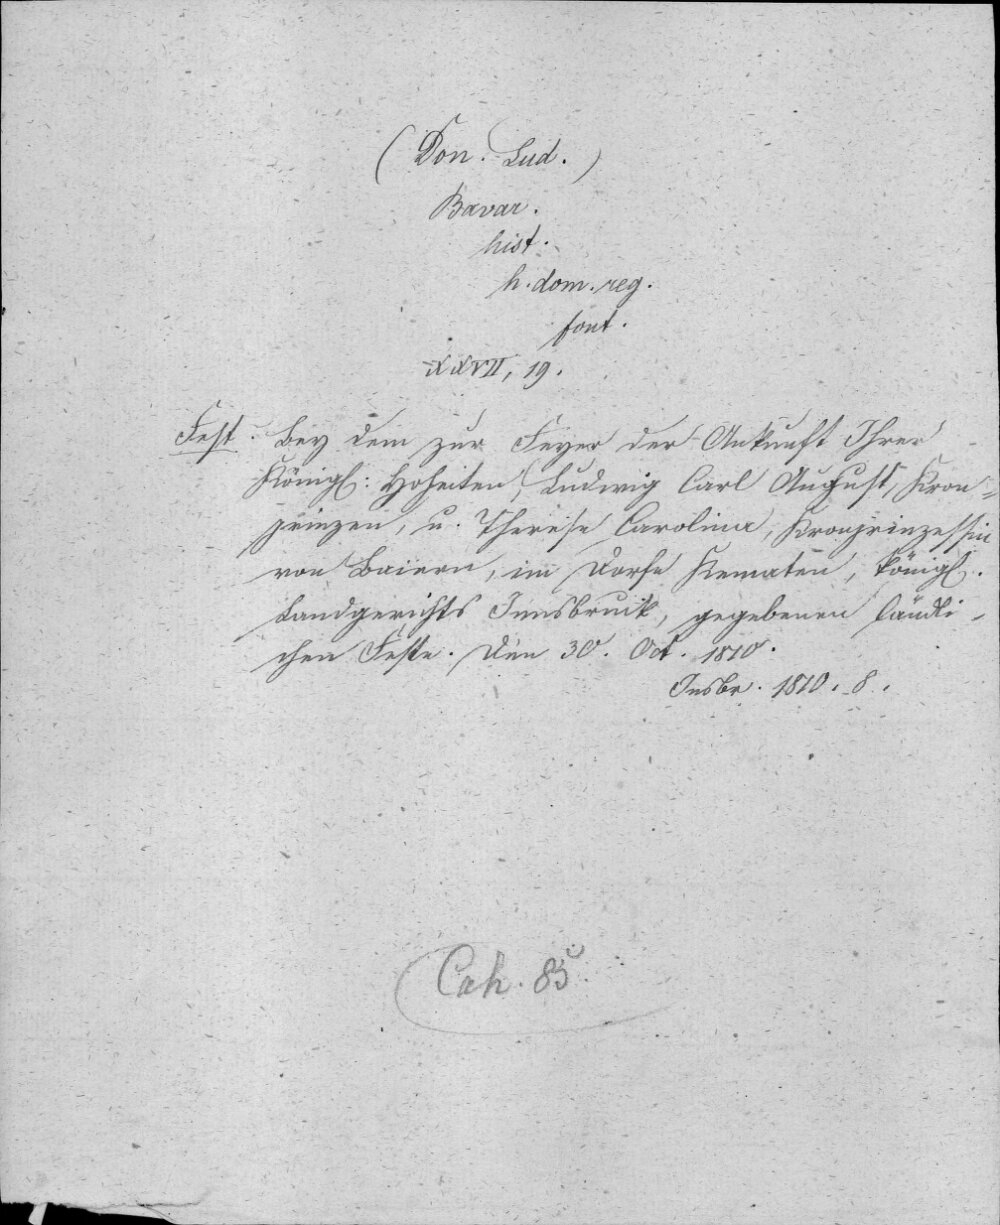 (Don. Lud.)
Bavar.
hist.
h. dom. reg.
font.
XXVII, 19.
Fest. bey dem zur Feyer der Ankunft Ihrer
Königl: Hoheiten, Ludwig Carl August, Kron-
prinzen, u. Therese Carolina, Kronprinzessin
von Baiern, im Dorfe Kematen, königl.
Landgerichts Innsbruck, gegebenen ländli-
chen Feste. Den 30. Oct. 1810.
Insbr. 1810. 8.
Cah. 85.